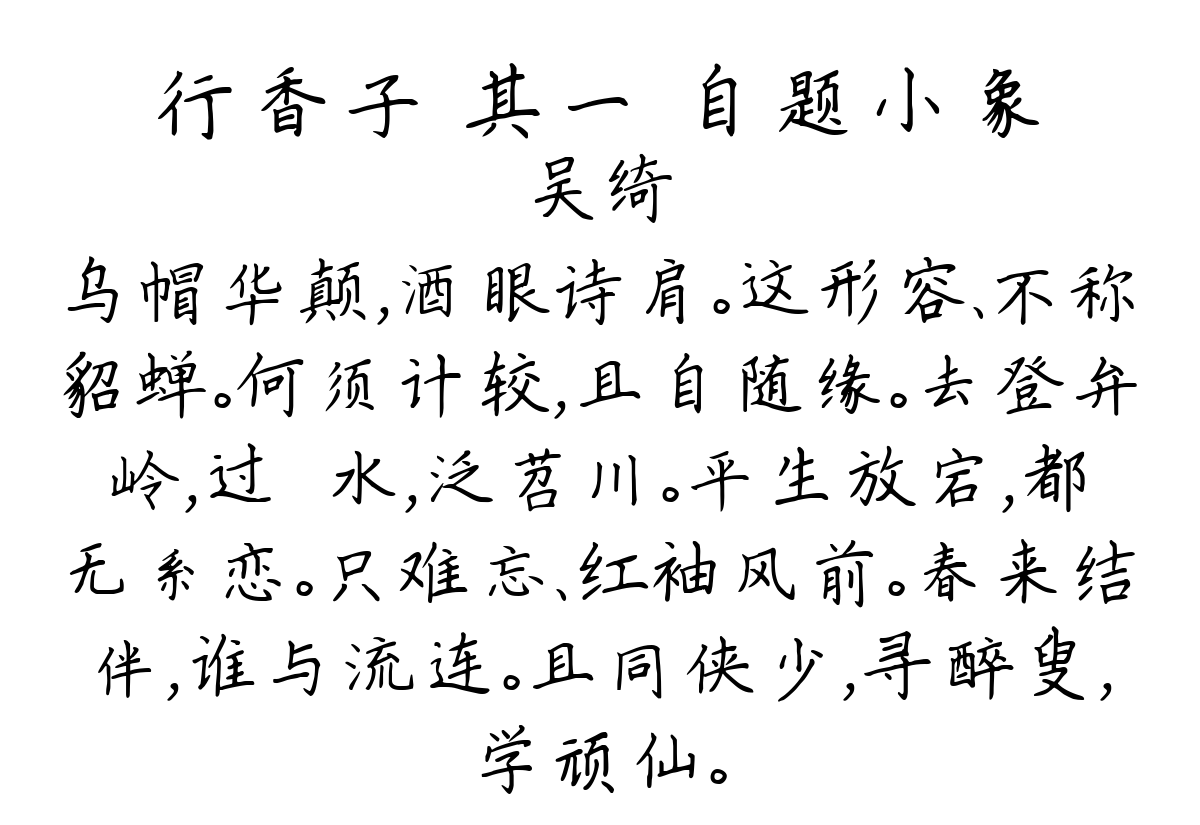 行香子 其一 自题小象
吴绮
乌帽华颠,酒眼诗肩。这形容、不称
貂蝉。何须计较,且自随缘。去登弁
岭,过 水,泛苕川。平生放宕,都
无系恋。只难忘、红袖风前。春来结
伴,谁与流连。且同侠少,寻醉叟,
学顽仙。